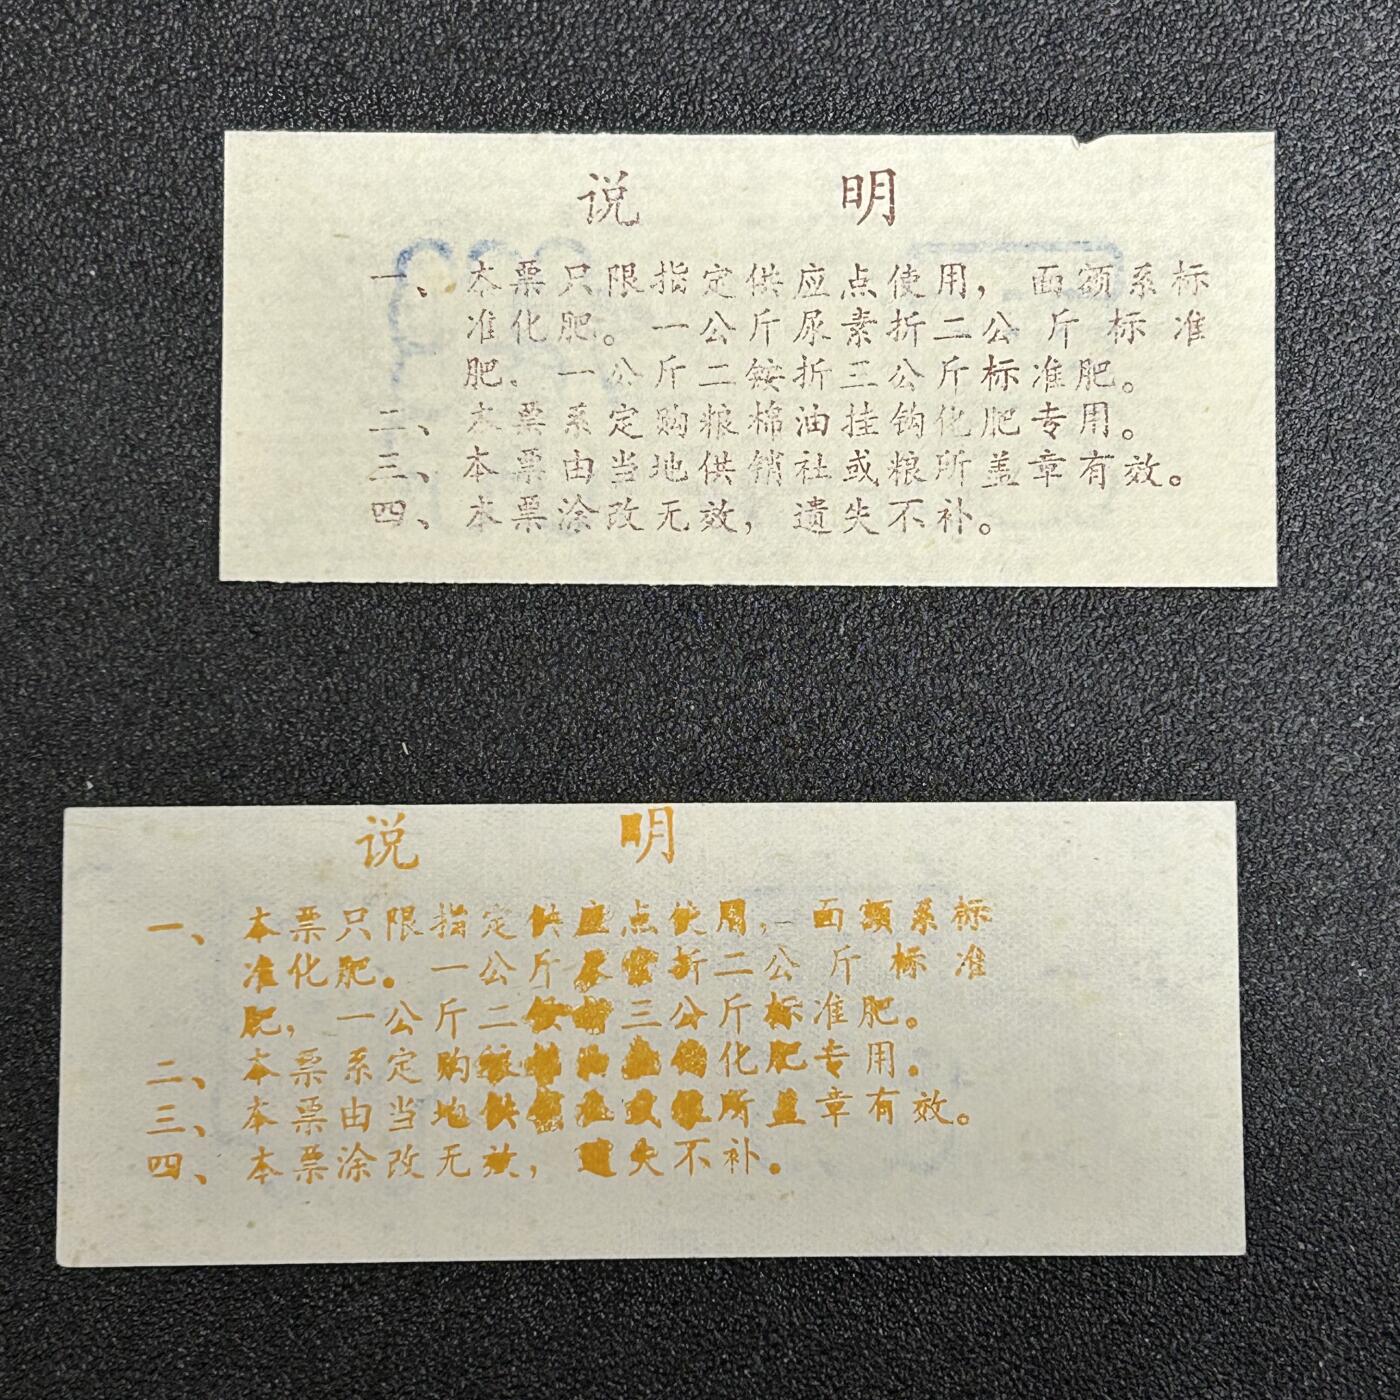 说 明
一、本票只限指定供应点使用，面额系标
准化肥。一公斤尿素折二公斤标准
肥。一公斤二铵折三公斤标准肥。
二、本票系定购粮棉油挂钩化肥专用。
三、本票由当地供销社或粮所盖章有效。
四、本票涂改无效，遗失不补。
说 明
一、本票只限指定供应点使用，面额系标
准化肥。一公斤尿素折二公斤标准
肥，一公斤二铵折三公斤标准肥。
二、本票系定购粮棉油挂钩化肥专用。
三、本票由当地供销社或粮所盖章有效。
四、本票涂改无效，遗失不补。